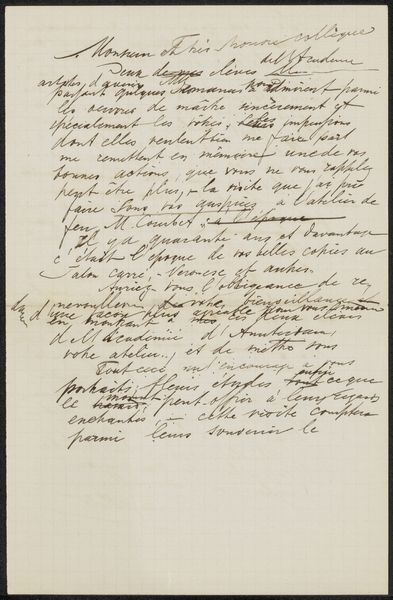 Monsieur et très honoré collègue
Deux de mes élèves de l'Academie
passant quelques semaines admirent parmi
les oeuvres de maître sincèrement et
spécialement les vôtres, impressions
dont elles veulent bien me faire part
me remettent en mémoire une de vos
bonnes actions, que vous ne vous rappelez
peut être plus, la visite que j'ai pu
faire sous vos auspices, à l'atelier de
feu M. Courbet, à l'époque
Il y a quarante ans et davantage
c'était l'époque de vos belles copies au
Salon carré, Veronese et autres.
Auriez vous l'obligeance de re
nouveller de votre bienveillance et
d'une façon plus agréable pour vous même
en montrant à mes ces deux élèves
d'Academie d'Amsterdam,
votre atelier, et de mettre vos
Tout ceci m'encourage à vous
portraits, fleurs études tout ce que
ce peut offrir à leurs regards
enchantés – cette visite comptera
parmi leurs souvenir le